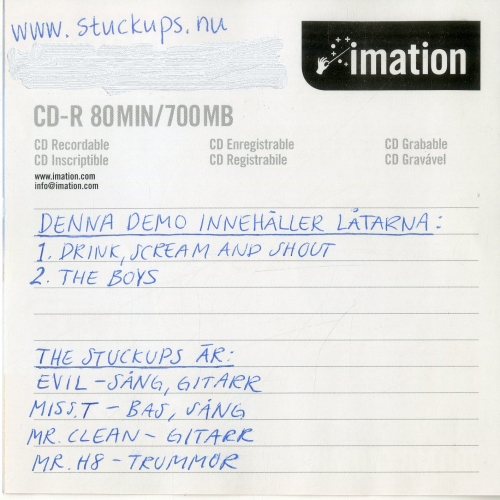 www.stuckups.nu
imation
CD-R 80MIN/700MB
CD Recordable CD Enregistrable CD Grabable
CD Inscriptible CD Registrabile CD Gravável
www.imation.com
info@imation.com
DENNA DEMO INNEHÅLLER LÅTARNA:
1. DRINK, SCREAM AND SHOUT
2. THE BOYS
THE STUCKUPS ÄR:
EVIL - SÅNG, GITARR
MISS.T - BAS, SÅNG
MR. CLEAN - GITARR
MR. H8 - TRUMMOR